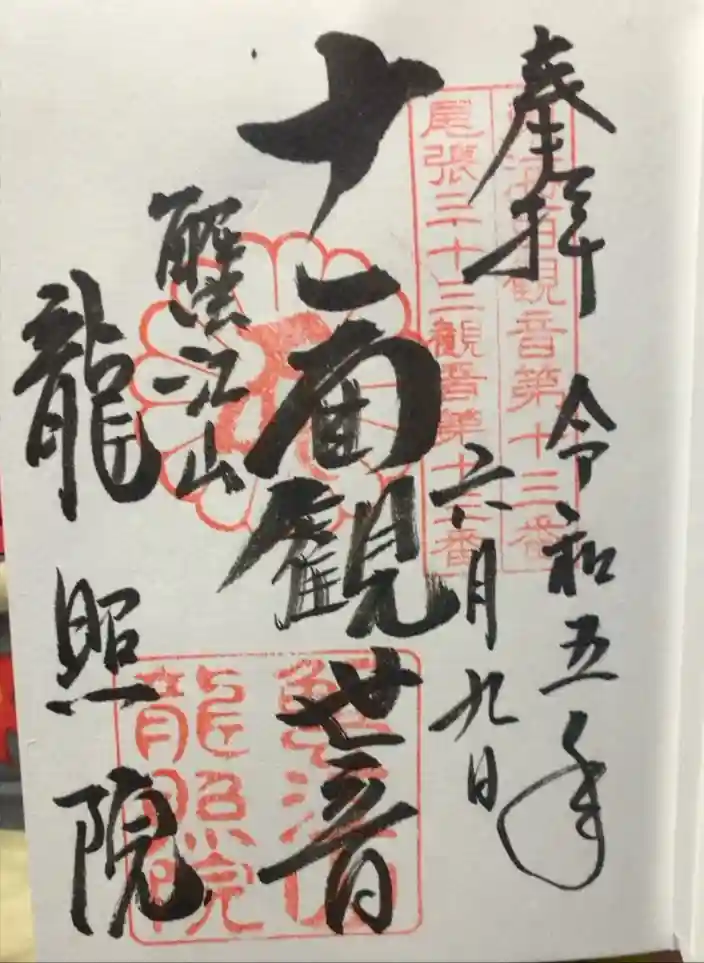 奉拝
令和五年
六月九日
東海百観音第十三番
尾張三十三観音第十三番
十一面観世音
蟹江山
龍照院
蟹江山
龍照院